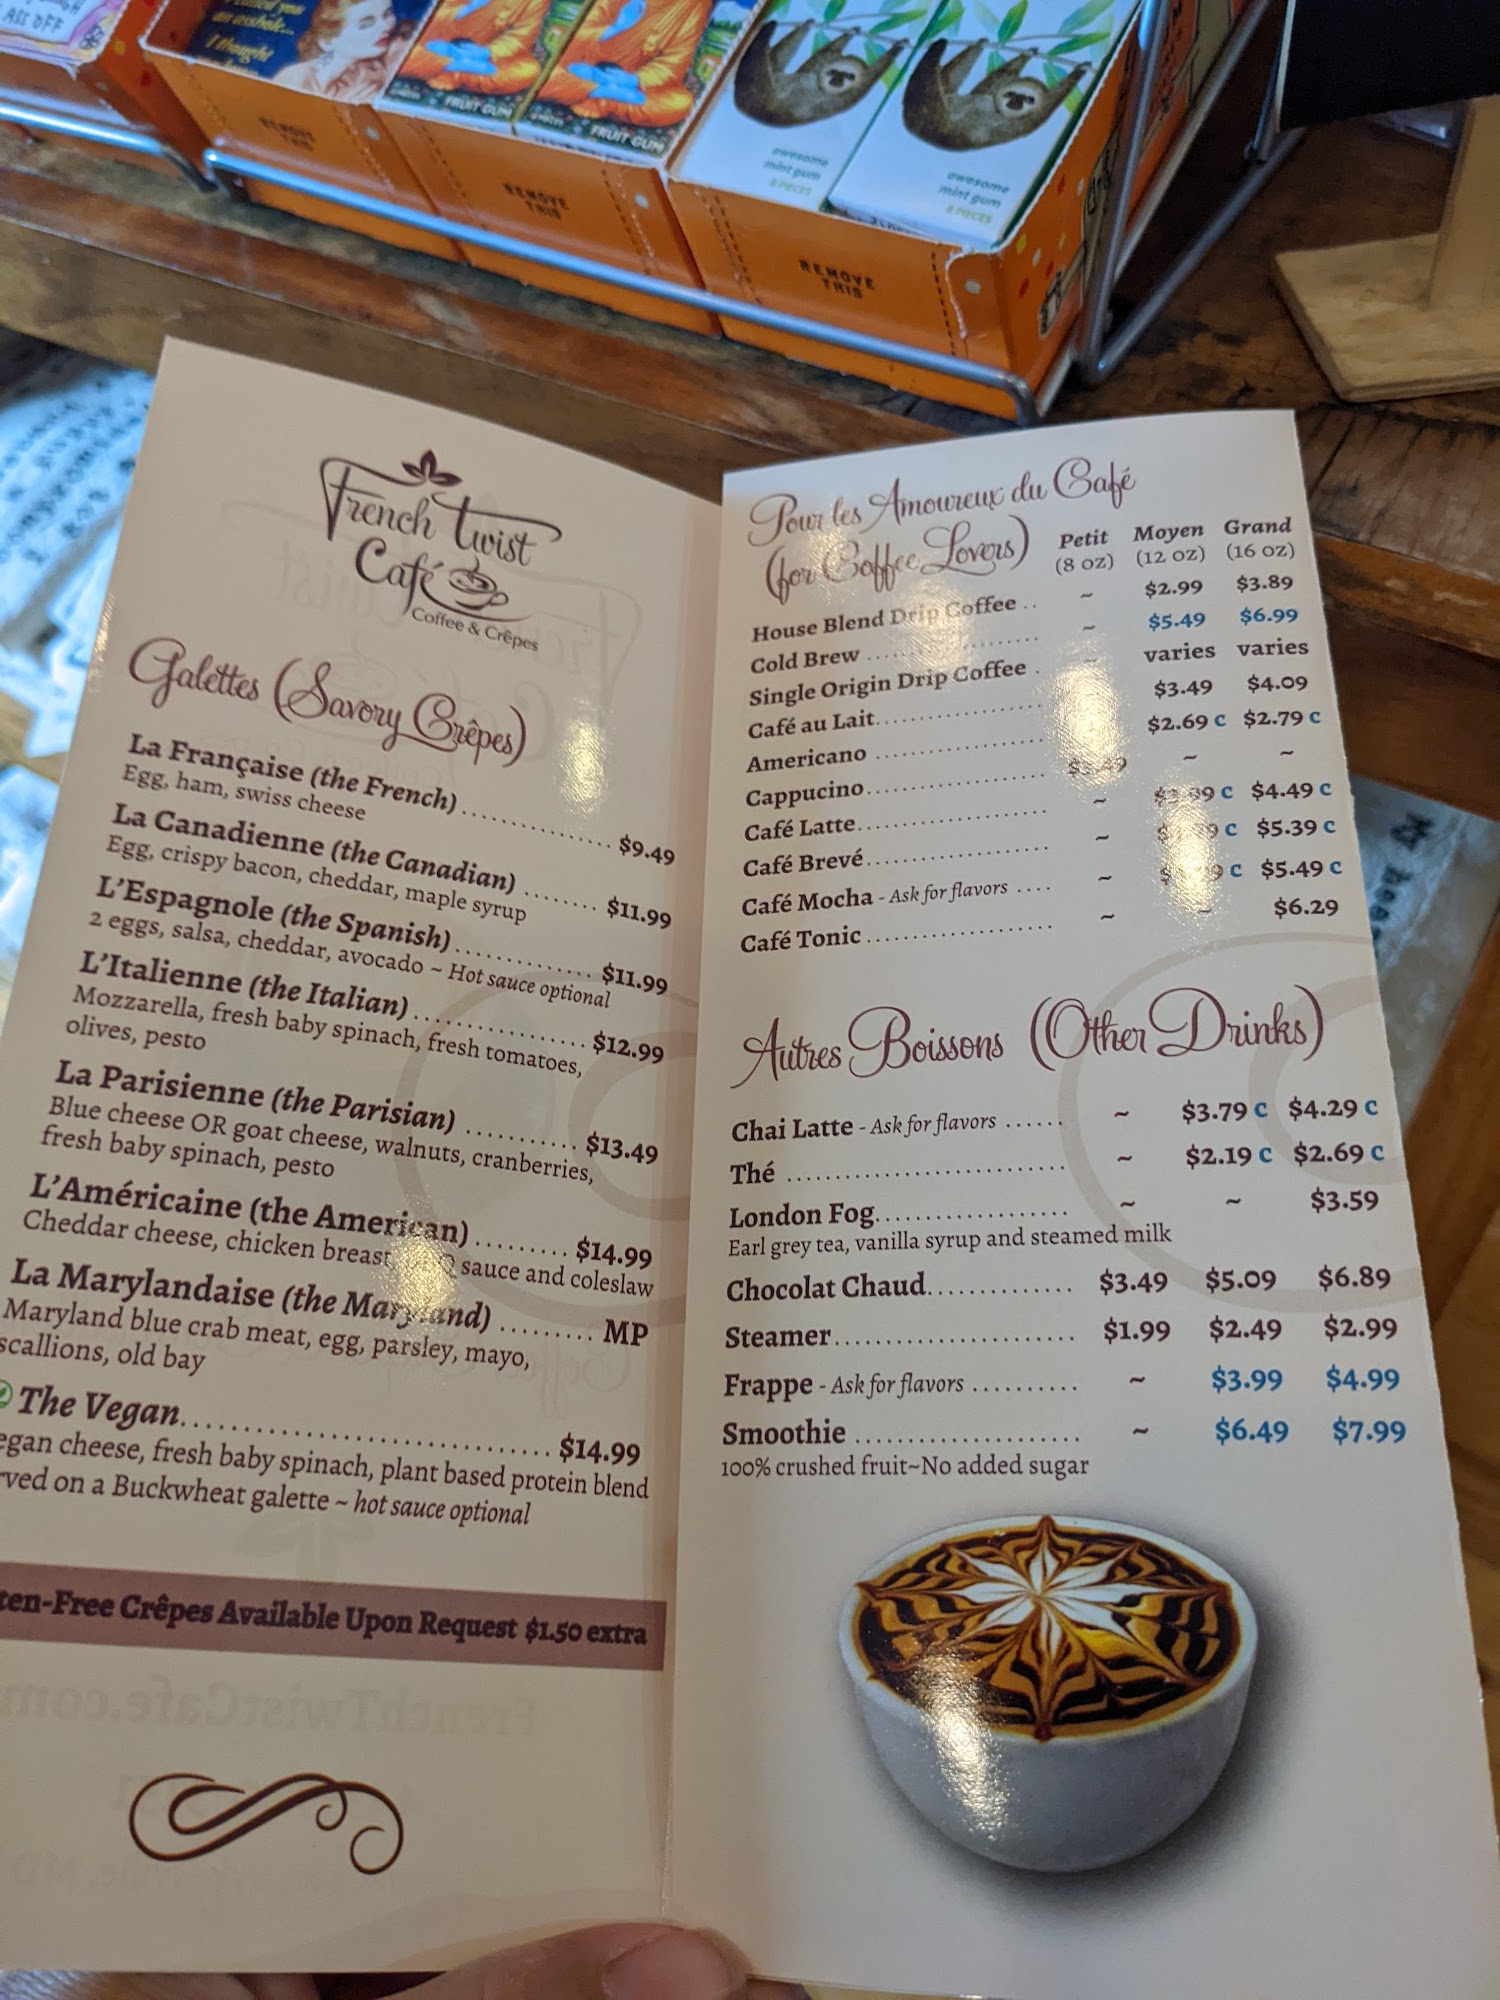 ASS OFF
I thought
FRUIT GUM
FRUIT GUM
awesome
mint gum
8 PIECES
awesome
mint gum
8 PIECES
REMOVE
THIS
REMOVE
THIS
REMOVE
THIS
French Twist
Café
Coffee & Crêpes
Galettes (Savory Crêpes)
La Française (the French) $9.49
Egg, ham, swiss cheese
La Canadienne (the Canadian) $11.99
Egg, crispy bacon, cheddar, maple syrup
L'Espagnole (the Spanish) $11.99
2 eggs, salsa, cheddar, avocado ~ Hot sauce optional
L'Italienne (the Italian) $12.99
Mozzarella, fresh baby spinach, fresh tomatoes,
olives, pesto
La Parisienne (the Parisian) $13.49
Blue cheese OR goat cheese, walnuts, cranberries,
fresh baby spinach, pesto
L'Américaine (the American) $14.99
Cheddar cheese, chicken breast, sauce and coleslaw
La Marylandaise (the Maryland) MP
Maryland blue crab meat, egg, parsley, mayo,
scallions, old bay
The Vegan $14.99
egan cheese, fresh baby spinach, plant based protein blend
rved on a Buckwheat galette ~ hot sauce optional
ten-Free Crêpes Available Upon Request $1.50 extra
Pour les Amoureux du Café
(for Coffee Lovers)
Petit Moyen Grand
(8 oz) (12 oz) (16 oz)
House Blend Drip Coffee ~ $2.99 $3.89
Cold Brew ~ $5.49 $6.99
Single Origin Drip Coffee ~ varies varies
Café au Lait $3.49 $4.09
Americano $2.69 c $2.79 c
Cappucino ~ ~
Café Latte ~ c $4.49 c
Café Brevé ~ c $5.39 c
Café Mocha - Ask for flavors ~ c $5.49 c
Café Tonic ~ ~ $6.29
Autres Boissons (Other Drinks)
Chai Latte - Ask for flavors ~ $3.79 c $4.29 c
Thé ~ $2.19 c $2.69 c
London Fog ~ ~ $3.59
Earl grey tea, vanilla syrup and steamed milk
Chocolat Chaud $3.49 $5.09 $6.89
Steamer $1.99 $2.49 $2.99
Frappe - Ask for flavors ~ $3.99 $4.99
Smoothie ~ $6.49 $7.99
100% crushed fruit~No added sugar